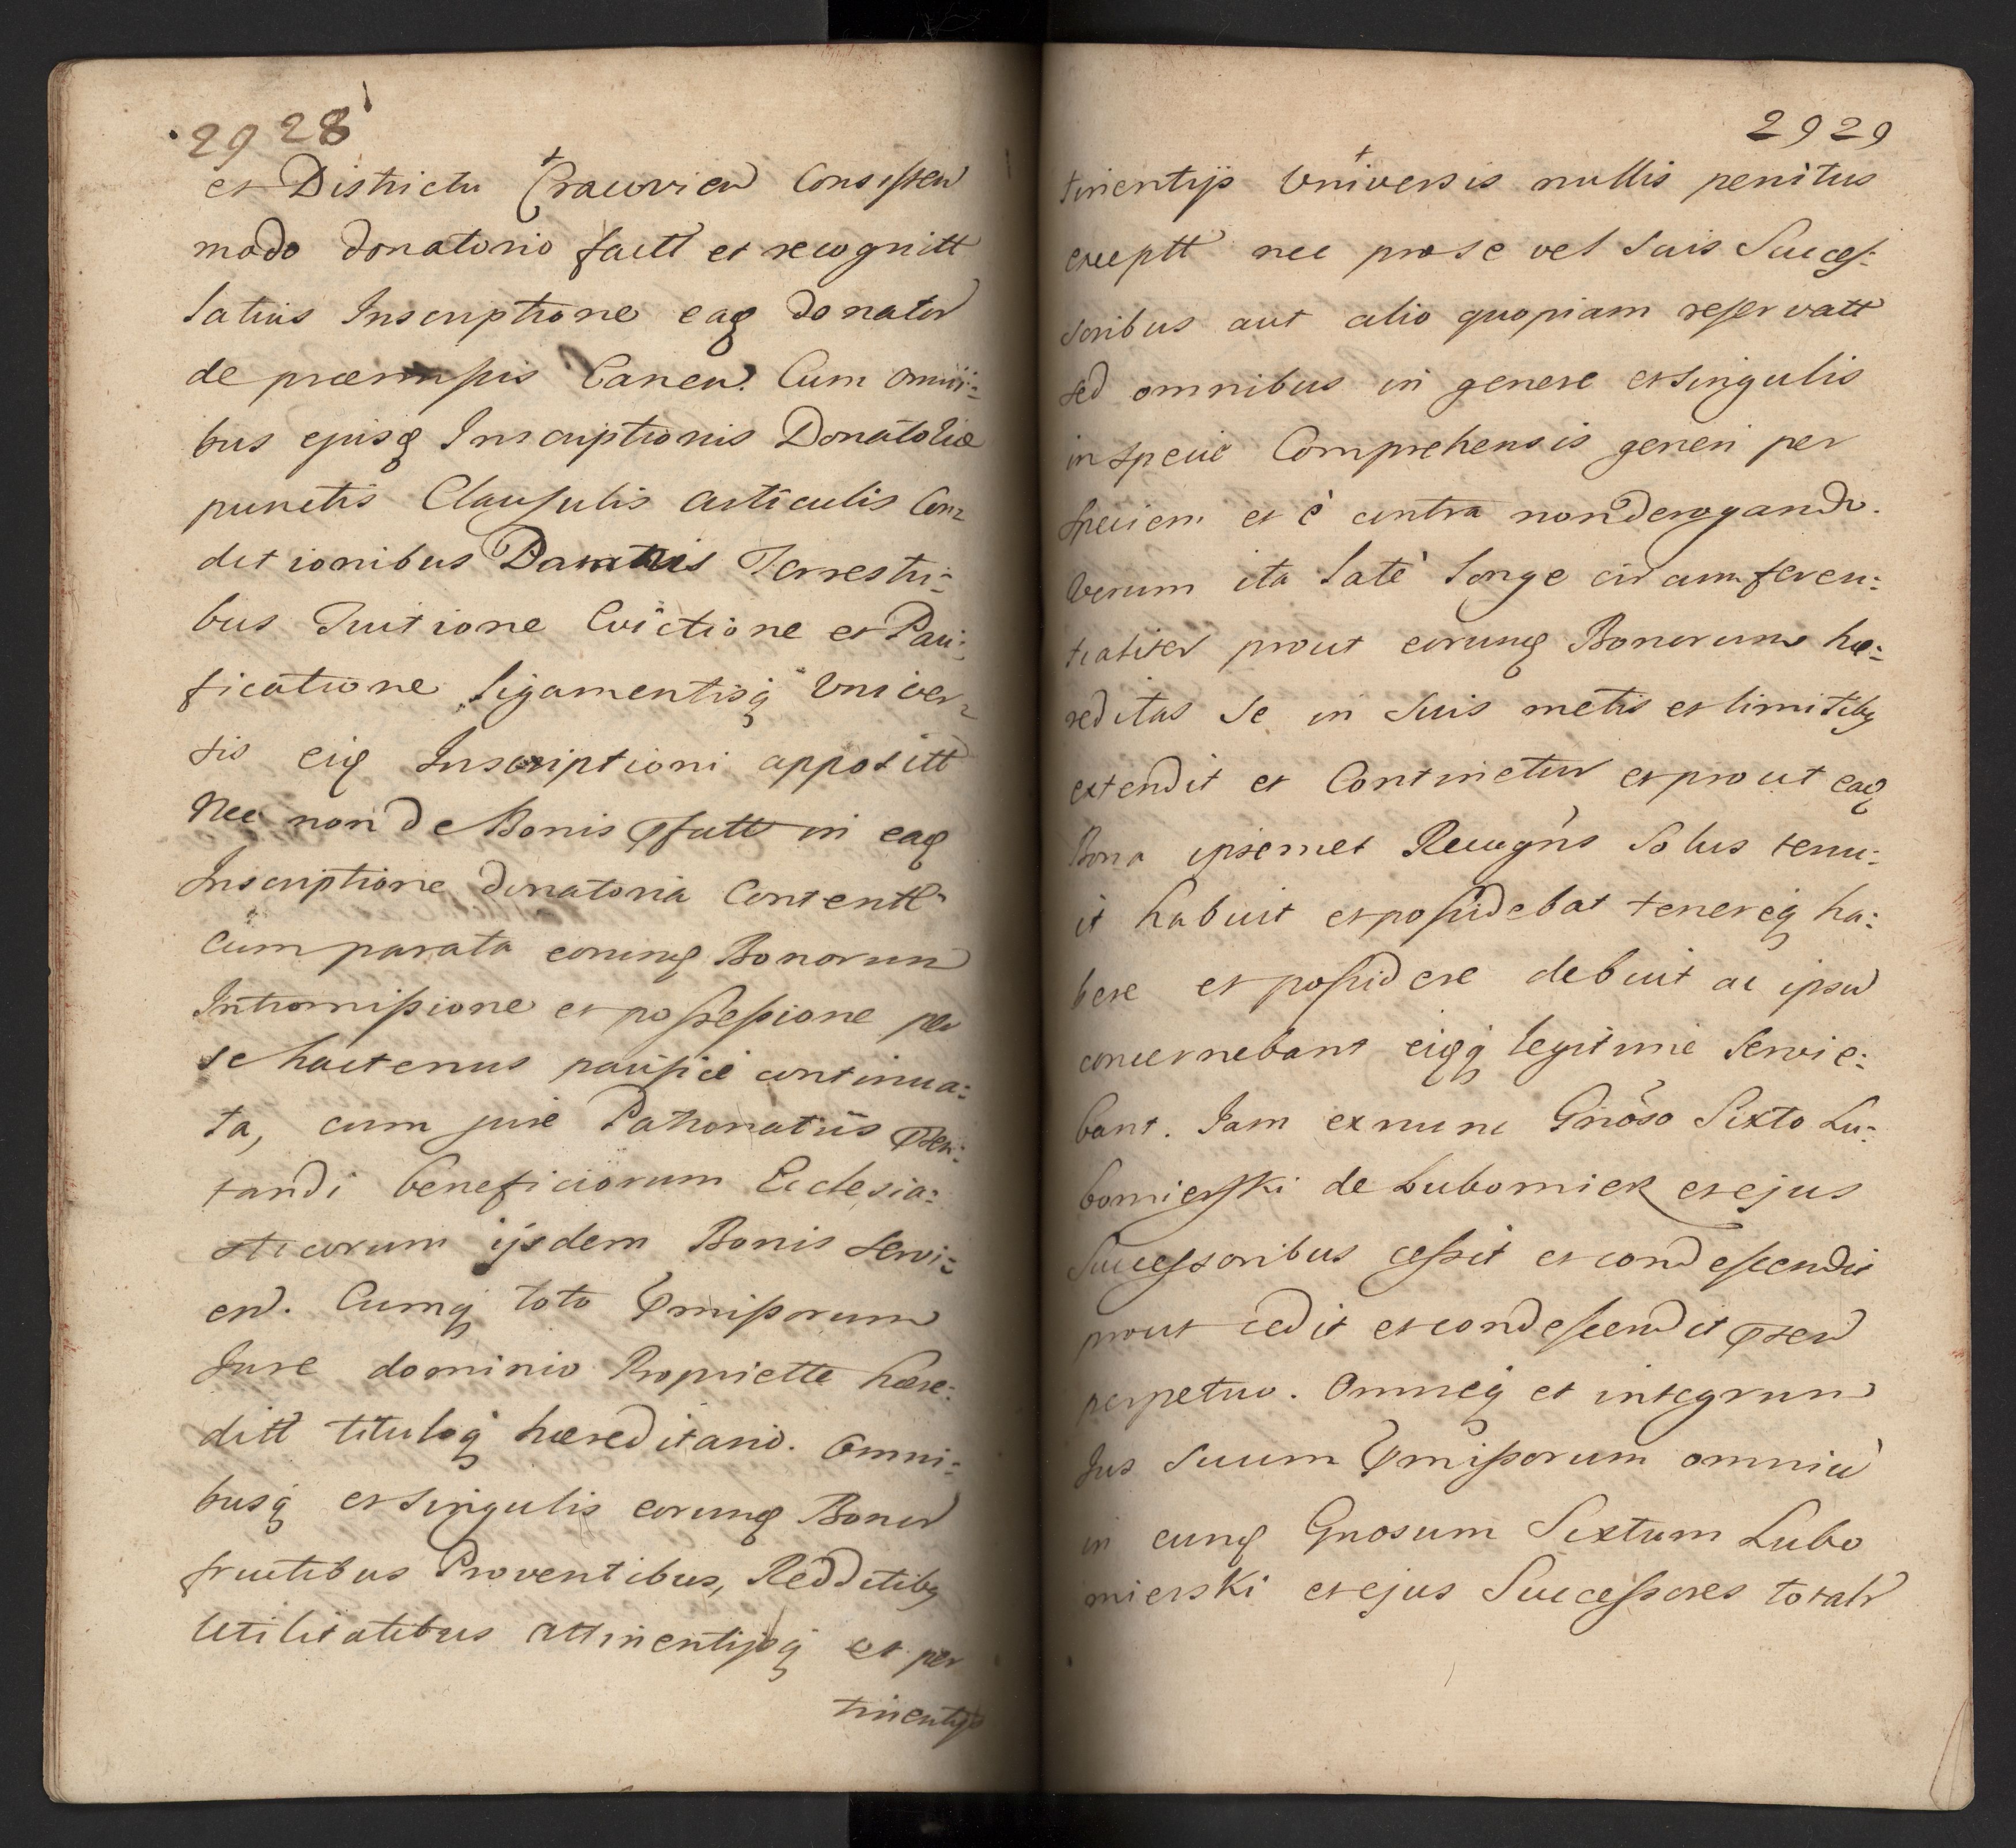 2928
et Districtu Cracovien Consisten
modo donatorio factt et recognitt
latius Inscriptione eaq donator
de præmissis Canen. Cum omni=
bus ejusq Inscriptionis Donatoriæ
punctis Clausulis articulis Con=
ditionibus Damnis Terrestri=
bus Tuitione Evictione et Paci=
ficatione ligamentisq Univer=
sis eiq Inscriptioni appositt
Nec non de Bonis pfatt in eaq
Inscriptione donatoria Contentt
Cum parata eorunq Bonorum
Intromissione et possessione per
se hactenus pacifice continua=
ta, cum jure Patronatus præsen=
tandi beneficiorum Ecclesia=
sticorum ijsdem Bonis servi=
en. Cumq toto pmissorum
Jure dominio Propriette hære=
ditt tituloq hæreditario. Omni=
busq et singulis eorunq Bonor
fructibus Proventibus, Redditibq
Utilitatibus attinentijsq et per
tinentijs
2929
tinentijs Universis nullis penitus
exceptt nec pro se vel suis Succes=
soribus aut alio quopiam reservatt
sed omnibus in genere et singulis
in specie Comprehensis generi per
speciem et è contra non derogando.
Verum ita latè longe circumferen=
tialiter prout eorunq Bonorum hæ=
reditas se in suis metis et limitibq
extendit et Continetur et prout eaq
Bona ipsemet Recogns solus tenu=
it habuit et possidebat tenereq ha=
bere et possidere debuit ac ipsu
concernebant eiqq legitime servie=
bant. Jam ex nunc Gnoso Sixto Lu=
bomierski de Lubomierz et ejus
Successoribus cessit et condescendit
prout cedit et condescendit psen
perpetuo. Omneq et integrum
Jus suum pmissorum omniu
in eunq Gnosum Sixtum Lubo
mierski et ejus Successores totalr